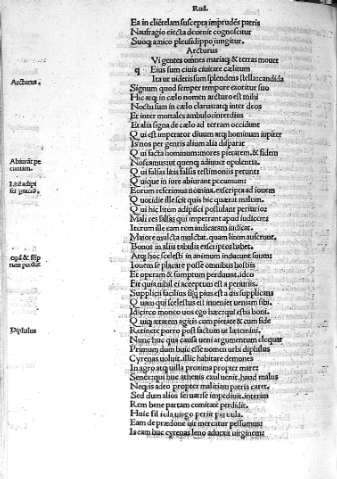 Rud.
Ea in clientelam suscepta imprudēs patris
Naufragio eiecta deuenit cognoscitur
Suoq; amico pleusidippo iungitur.
Arcturus
Vi gentes omnes mariaq; & terras mouet
q Eius sum ciuis ciuitate cælitum
Ita ut uidetis sum splendens stella candida
Arcturus.
Signum quod semper tempore exoritur suo
Hic atq; in cælo nomen arcturo est mihi
Noctu sum in cælo clarus atq; inter deos
Et inter mortales ambulo interdius
Et alia signa de cælo ad terram occidunt
Q ui est imperator diuum atq; hominum iupiter
Is nos per gentis alium alia disparat
Q ui facta hominum: mores pietatem. & fidem
Noscamus: ut quemq; adiuuet opulentia.
Q ui falsas litis falsis testimoniis petunt
Q uique in iure abiurant pecuniam
Abiurāt pe
cuniam.
Eorum referimus nomina. exscripta ad iouem
Q uotidie ille scit quis hic quærat malum.
Q ui hic litem adipisci postulant periurio:
Litē adipi
sci
Mali res falsas qui impetrant apud iudicem:
Iterum ille eam rem iudicatam iudicat.
Maiore multa multat. quam litem auferunt.
Bonos in aliis tabulis exscriptos habet.
Atq; hoc scelesti in animum inducunt suum:
Iouem se placare posse donis hostiis
Et operam & sumptum perdunt. ideo
Fit quia nihil ei acceptum est a periuriis.
Supplicii facilius siq; pius est a dis supplicans
Q uam qui scelestus est inueniet ueniam sibi.
Idcirco moneo uos ego hæc qui estis boni.
Q uiq; ætatem agitis cum pietate & cum fide
Retinete porro post factum ut lætemini.
Nunc huc qua causa ueni argumentum eloquar
Primum dum huic esse nomen urbi diphilus
Diphilus
Cyrenas uoluit. illic habitat demones
In agro atq; uilla proxima propter mare:
Senex: qui huc athenis exul uenit. haud malus
Neq; is adeo propter malitiam patria caret.
Sed dum alios seruat se impediuit. interim
Rem bene partam comitate perdidit.
Huic filiola uirgo periit paruula.
Eam de prædone uir mercatur pessumus
Is eam huc cyrenas leno aduexit uirginem